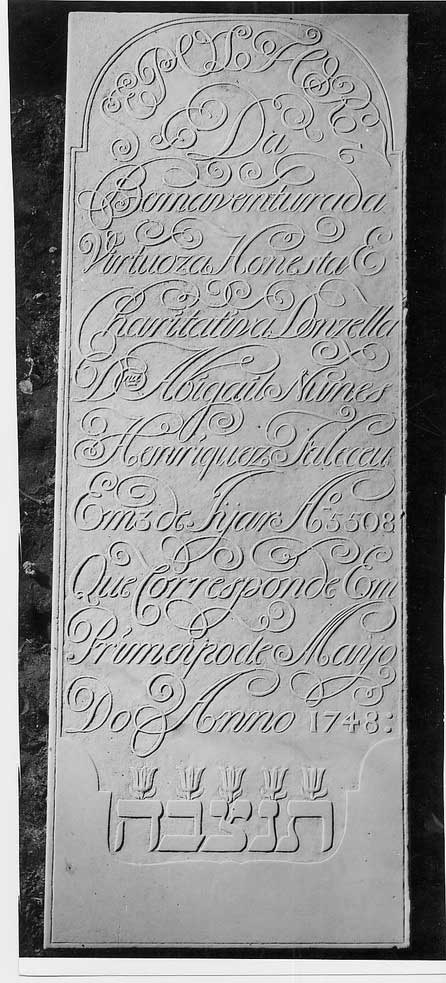 Da
Bemaventurada
Virtuoza Honesta E
Charitativa Donzella
Dna Abigail Nunes
Henriquez Faleceu
Em 3 de Yjar Ao 5508
Que Corresponde Em
Primeiro de Mayo
Do Anno 1748:
תנצבה